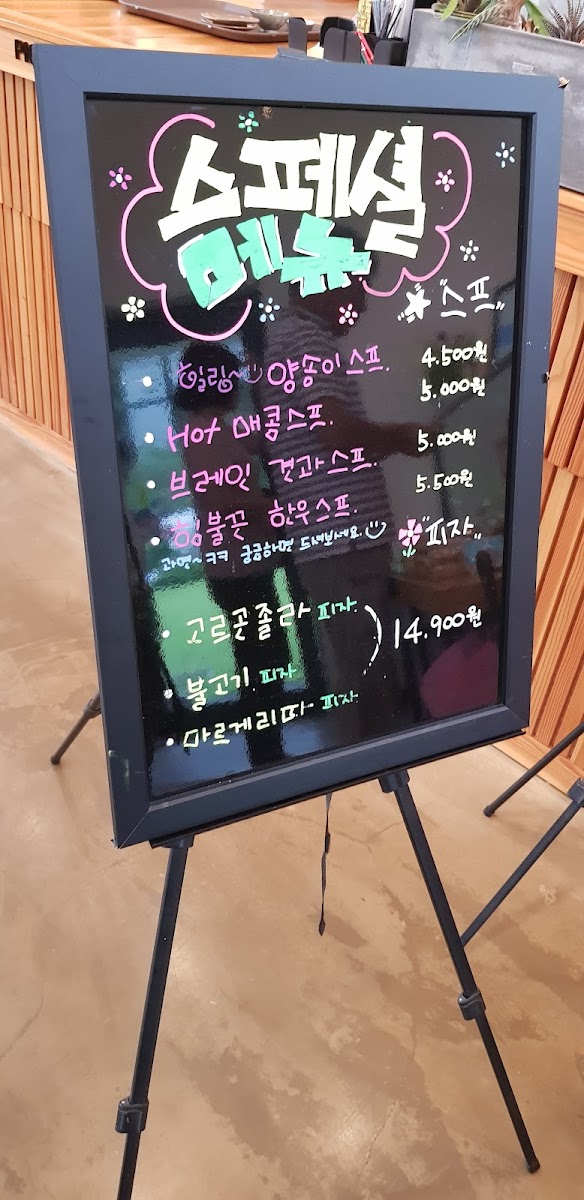 스페셜
메뉴
"스프"
힐링~ 양송이 스프. 4.500원
Hot 매콤스프. 5.000원
브레인 견과스프. 5.000원
힘불끈 한우스프. 5.500원
과연~ ㅋㅋ 궁금하면 드셔보세요.
"피자"
고르곤졸라 피자
불고기 피자
마르게리따 피자
14.900원